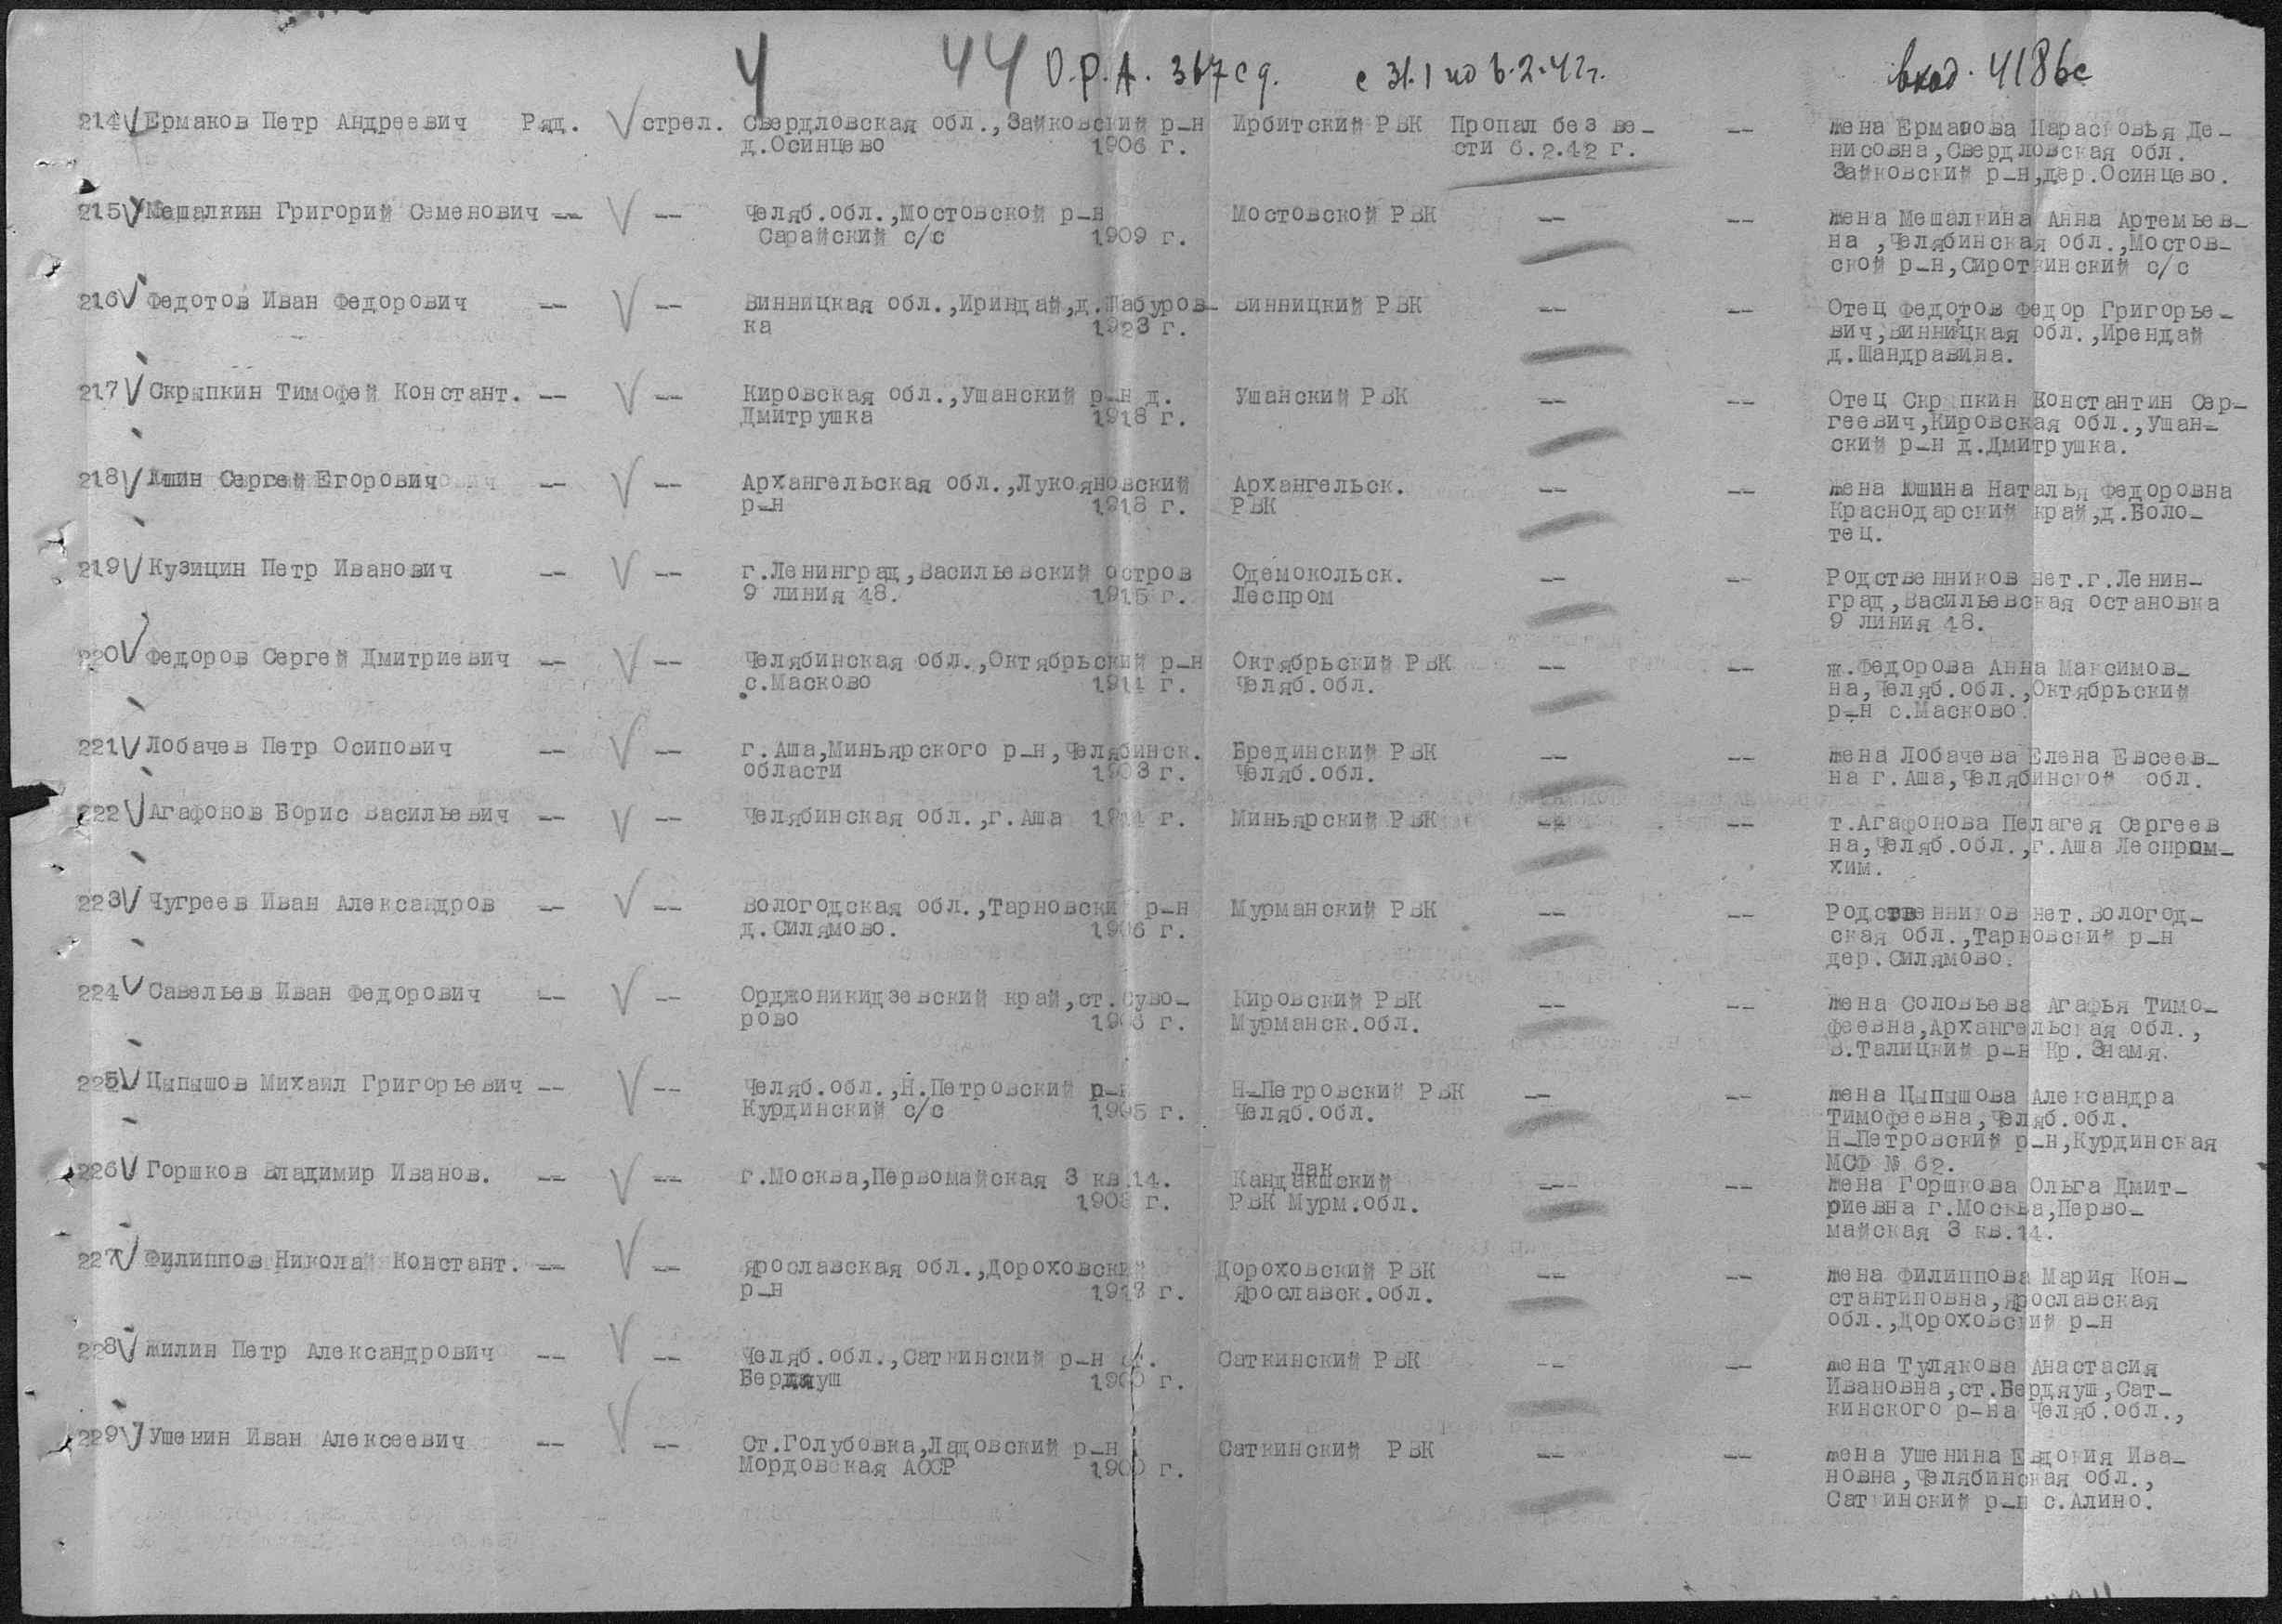 4 44 О.Р.А. 367 сд. с 31.1 по 6.2.42г. вход. 4186с
214 Ермаков Петр Андреевич Ряд. стрел. Свердловская обл.,Зайковский р-н Ирбитский РВК Пропал без ве- -- жена Ермакова Парасковья Де-
д.Осинцево 1906 г. сти 6.2.42 г. нисовна,Свердловская обл.
Зайковский р-н,дер.Осинцево.
215 Мешалкин Григорий Семенович -- -- Челяб.обл.,Мостовской р-н Мостовской РВК -- -- жена Мешалкина Анна Артемьев-
Сарайский с/с 1909 г. на ,Челябинская обл.,Мостов-
ской р-н,Сироткинский с/с
216 Федотов Иван Федорович -- -- Винницкая обл.,Ириндай,д.Шабуров- Винницкий РВК -- -- Отец Федотов Федор Григорье-
ка 1923 г. вич,Винницкая обл.,Ирендай
д.Шандравина.
217 Скрыпкин Тимофей Констант. -- -- Кировская обл.,Ушанский р-н д. Ушанский РВК -- -- Отец Скрыпкин Константин Сер-
Дмитрушка 1918 г. геевич,Кировская обл.,Ушан-
ский р-н д.Дмитрушка.
218 Сергей Егорович -- -- Архангельская обл.,Лукояновский Архангельск. -- -- жена Юшина Наталья Федоровна
р-н 1918 г. РВК Краснодарский край,д.Боло-
тец.
219 Кузицин Петр Иванович -- -- г.Ленинград,Васильевский остров Одемокольск. -- -- Родственников нет.г.Ленин-
9 линия 48. 1915 г. Леспром град,Васильевская остановка
9 линия 48.
220 Федоров Сергей Дмитриевич -- -- Челябинская обл.,Октябрьский р-н Октябрьский РВК -- -- ж.Федорова Анна Максимов-
с.Масково 1914 г. Челяб.обл. на,Челяб.обл.,Октябрьский
р-н с.Масково.
221 Лобачев Петр Осипович -- -- г.Аша,Миньярского р-н,Челябинск. Брединский РВК -- -- жена Лобачева Елена Евсеев-
области 1903 г. Челяб.обл. на г.Аша,Челябинской обл.
222 Агафонов Борис Васильевич -- -- Челябинская обл.,г.Аша г. Миньярский РВК -- -- т.Агафонова Пелагея Сергеев
на,Челяб.обл.,г.Аша Леспром-
хим.
223 Чугреев Иван Александров -- -- Вологодская обл.,Тарновский р-н Мурманский РВК -- -- Родственников нет.Вологод-
д.Силямово. 1906 г. ская обл.,Тарновский р-н
дер.Силямово.
224 Савельев Иван Федорович -- -- Орджоникидзевский край,ст.Суво- Кировский РВК -- -- жена Соловьева Агафья Тимо-
рово г. Мурманск.обл. феевна,Архангельская обл.,
В.Талицкий р-н Кр.Знамя.
225 Цыпышов Михаил Григорьевич -- -- Челяб.обл.,Н.Петровский р-н Н-Петровский РВК -- -- жена Цыпышова Александра
Курдинский с/с 1905 г. Челяб.обл. Тимофеевна,Челяб.обл.
Н-Петровский р-н,Курдинская
МСФ № 62.
226 Горшков Владимир Иванов. -- -- г.Москва,Первомайская 3 кв.14. Кандалакшский -- -- жена Горшкова Ольга Дмит-
г. РВК Мурм.обл. риевна г.Москва,Перво-
майская 3 кв.14.
227 Филиппов Николай Констант. -- -- Ярославская обл.,Дороховский Дороховский РВК -- -- жена Филиппова Мария Кон-
р-н г. Ярославск.обл. стантиповна,Ярославская
обл.,Дороховский р-н
228 Жилин Петр Александрович -- -- Челяб.обл.,Саткинский р-н ст. Саткинский РВК -- -- жена Тулякова Анастасия
Бердяуш 1900 г. Ивановна,ст.Бердяуш,Сат-
кинского р-на Челяб.обл.,
229 Ушенин Иван Алексеевич -- -- Ст.Голубовка,Ладовский р-н Саткинский РВК -- -- жена Ушенина Евдокия Ива-
Мордовская АССР 1900 г. новна,Челябинская обл.,
Саткинский р-н с.Алино.